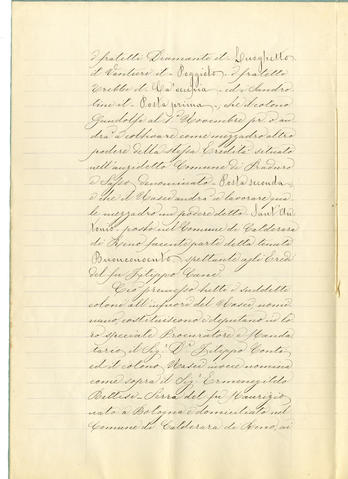 i fratelli Diamante il Lunghetto
il Vanturi il Poggiolo i fratelli
Trebbi di Ca' e il Sandro
lini il Posta prima, che il colono
Gandolfi al 1° Novembre pr. o an
drà a coltivare come mezzadro altro
podere della stessa Eredità situato
nell'anzidetto Comune di
e Sasso denominato Posta seconda
e che il Masei andrà a lavorare qua
le mezzadro un podere detto Sant'An
tonio posto nel Comune di Calderara
di Reno facente parte della tenuta
Buonconvento, spettante agli Eredi
del fu Filippo Cané
Ciò premesso tutti i suddetti
coloni all'infuori del Masei nomi
nano, costituiscono e deputano in lo
ro speciale Procuratore e Manda
tario il Sig.r D.r Filippo Conta
ed il colono Masei invece nomina
come sopra il Sig.r Ermenegildo
Bettini Serra del fu Maurizio
nato a Bologna e domiciliato nel
Comune di Calderara di Reno, ai